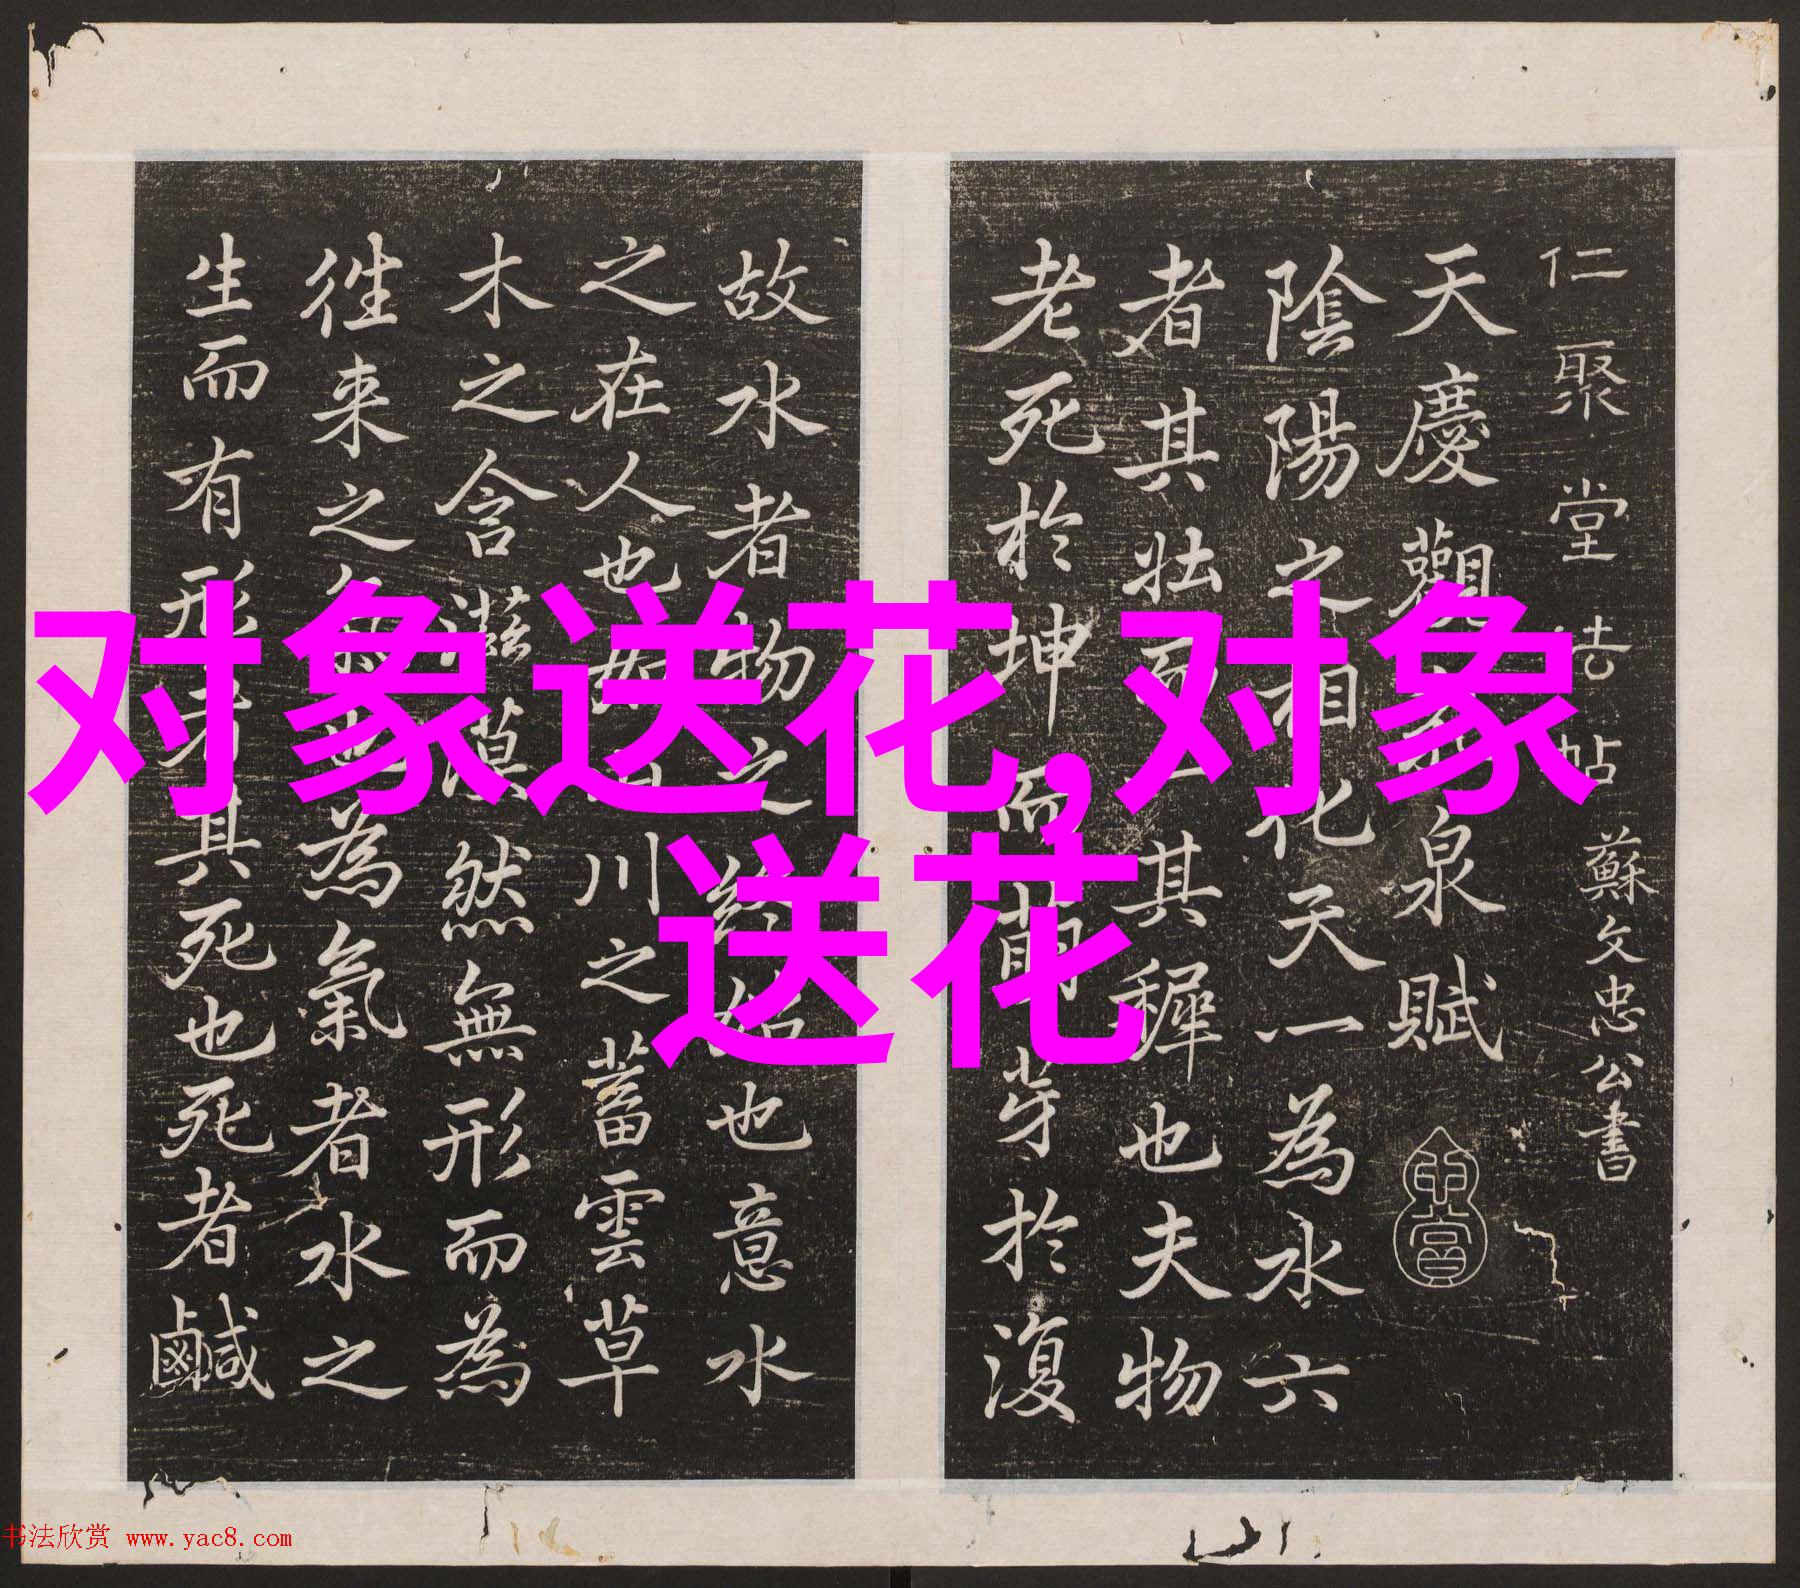 对象送花,对象
送花
仁聚堂法帖 蘇文忠公書
天慶觀乳泉賦
陰陽之相化天一為水六
者其壯而一其穉也夫物
老死於坤而萌芽於復
故水者物之終始也意水
之在人也如山川之蓄雲草
木之含滋漠然無形而為
徃来之氣也為氣者水之
生而有形者其死也死者鹹
书法欣赏 www.yac8.com